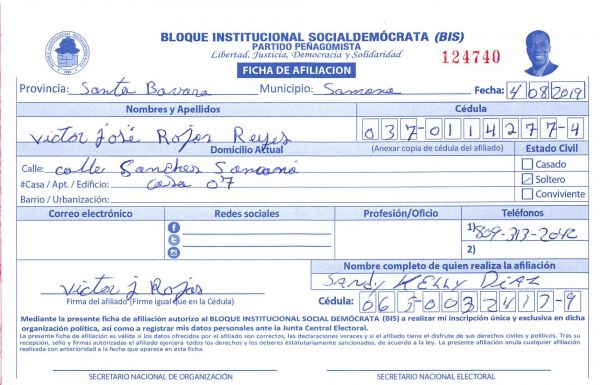 BLOQUE INSTITUCIONAL SOCIALDEMÓCRATA (BIS)
PARTIDO PEÑAGOMISTA
Libertad, Justicia, Democracia y Solidaridad
124740
FICHA DE AFILIACION
Provincia: Santa Barbara Municipio: Samana Fecha: 4/08/2019
Nombres y Apellidos Cédula
Victor José Rojas Reyes 037-0114277-4
Domicilio Actual (Anexar copia de cédula del afiliado) Estado Civil
Calle: calle Sanches Samaná Casado
#Casa / Apt. / Edificio: casa 07 Soltero
Barrio / Urbanización: Conviviente
Correo electrónico Redes sociales Profesión/Oficio Teléfonos
1) 809-313-2042
2)
Nombre completo de quien realiza la afiliación
Victor J Rojas SANDY KELLY DIAZ
Firma del afiliado (Firme igual que en la Cédula) Cédula: 065-0032417-9
Mediante la presente ficha de afiliación autorizo al BLOQUE INSTITUCIONAL SOCIAL DEMÓCRATA (BIS) a realizar mi inscripción única y exclusiva en dicha
organización política, así como a registrar mis datos personales ante la Junta Central Electoral.
La presente ficha de afiliación es válida si los datos ofrecidos por el afiliado son correctos, las declaraciones veraces y si el afiliado tiene el disfrute de sus derechos civiles y políticos. Tras su
recepción, sello y firmas autorizadas el afiliado ejercerá todos los derechos y los deberes estatutariamente sancionados, de acuerdo a la ley. La presente afiliación anula cualquier afiliación
realizada con anterioridad a la fecha que aparece en esta ficha.
SECRETARIO NACIONAL DE ORGANIZACIÓN SECRETARIO NACIONAL ELECTORAL